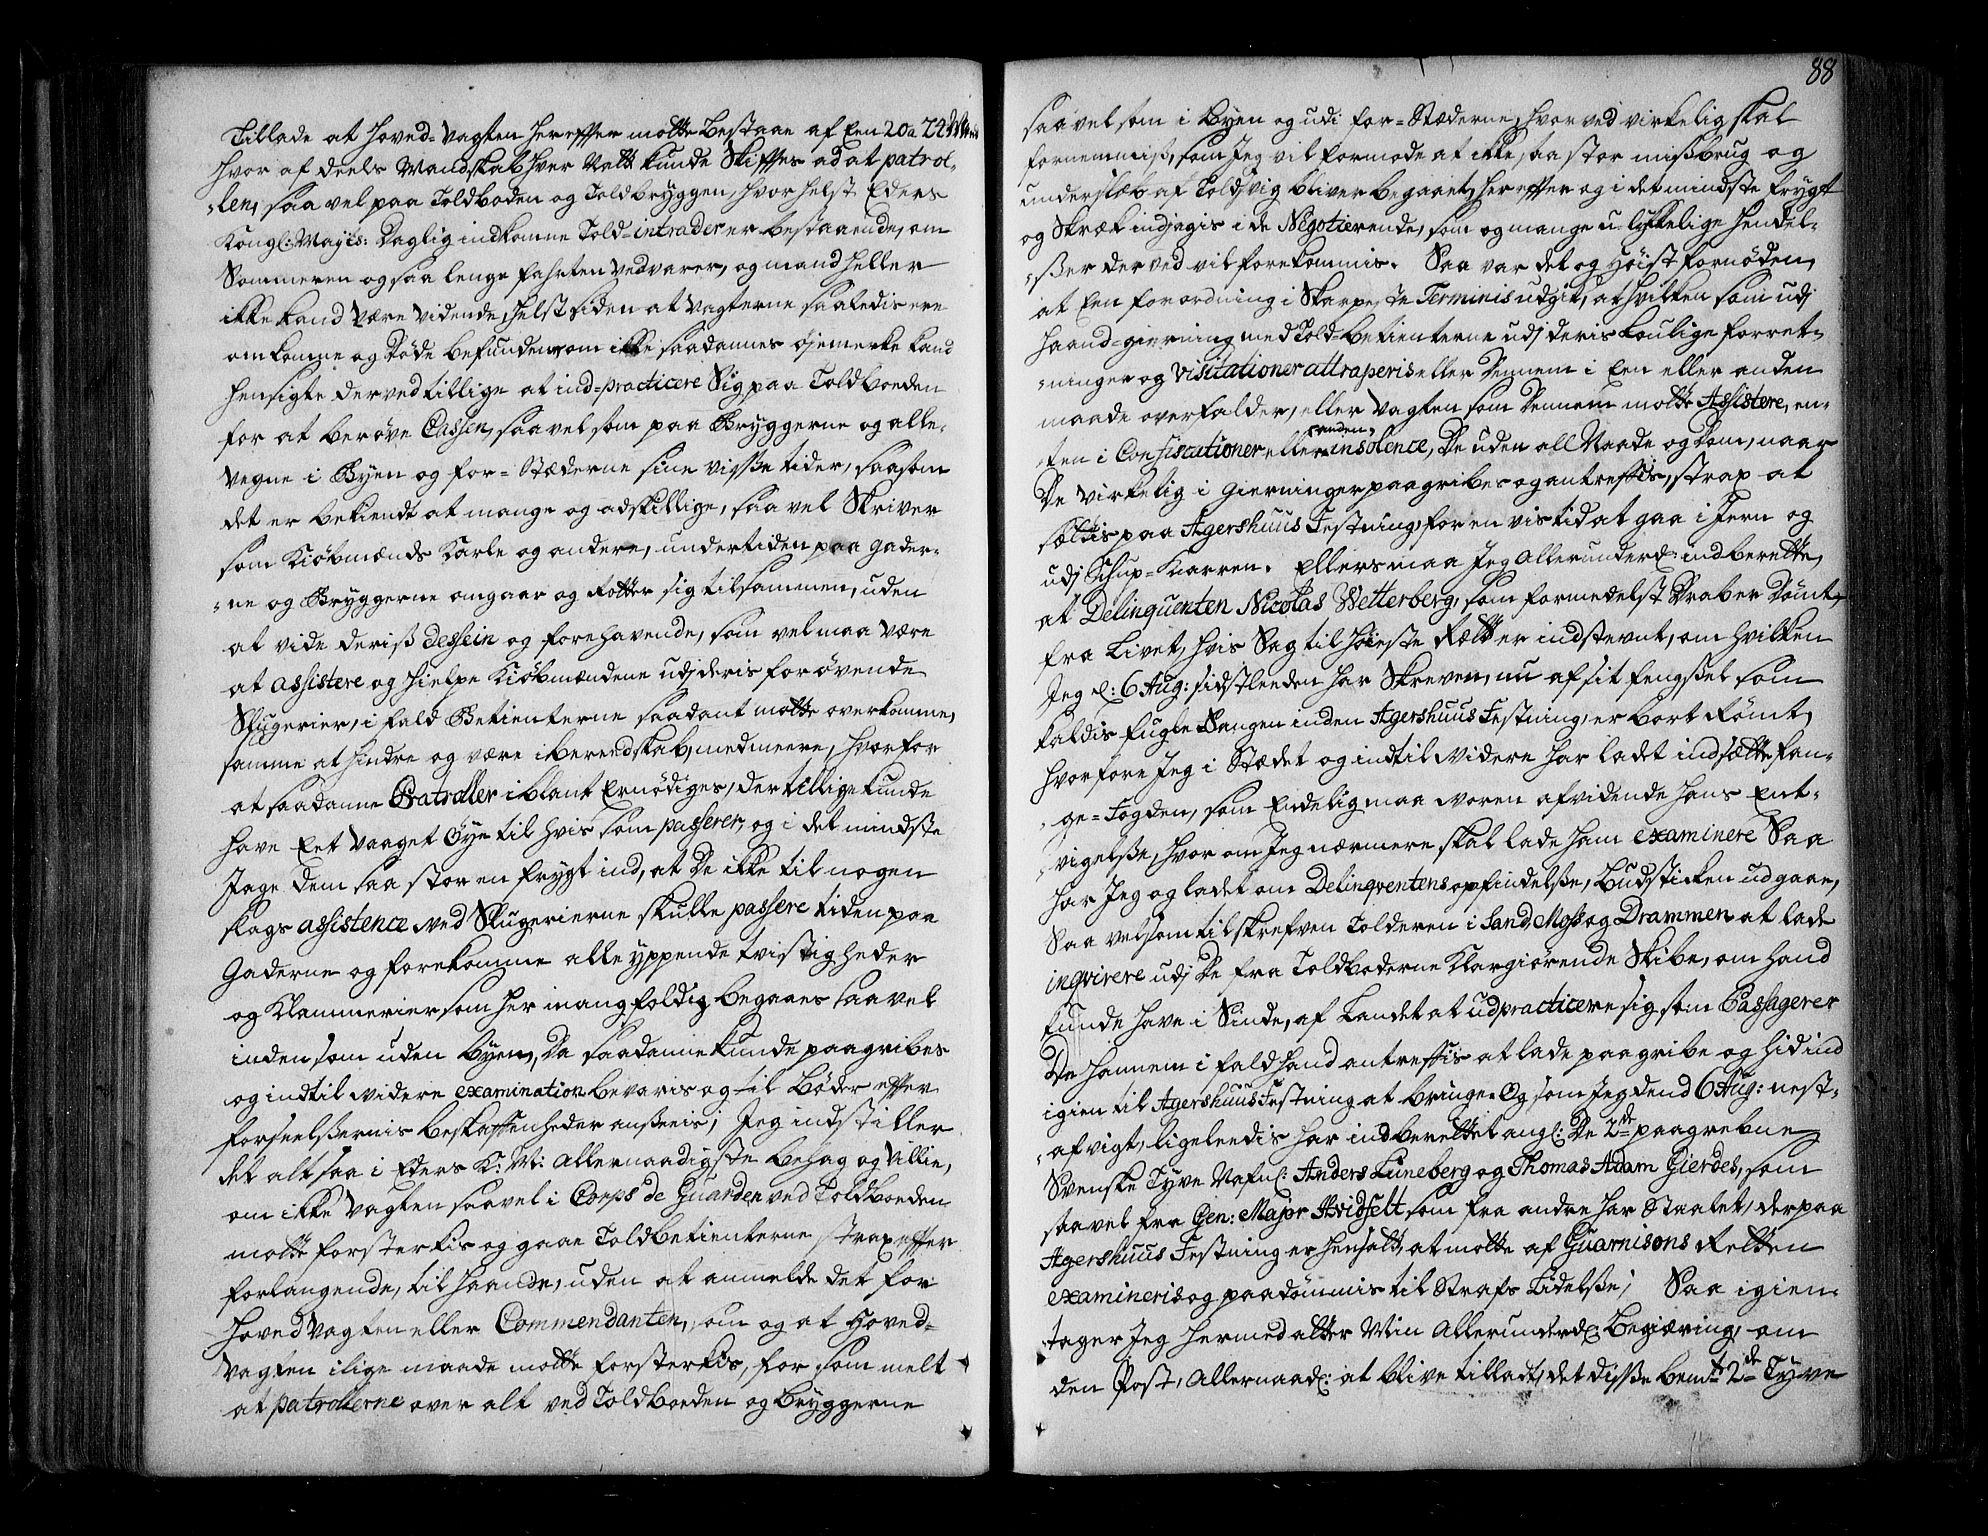 Tillade at Hoved-Vagten herefter motte bestaae af Een 20 a 24
hvor af deels Mandskab hver Natt kunde Skifftes ad at patrol-
len, saa vel paa Toldboden og Toldbryggen, hvor helst Eders
Kongl: Mayts: Daglig indkomne Told-intrader er bestaaende, om
Sommeren og saa lenge fahrten vedvarer, og mand heller
ikke kand være vidende, helst siden at Vagterne saaledis ere
omkomne og Døde befunden, om ikke saadannes øjemerke kand
hensigte derved tillige at ind-practicere Sig paa Toldboeden
for at berøve Cassen, saa vel som paa Bryggerne og alle-
vegne i Byen og for-Stæderne sine visse tider, saasom
det er bekiendt at mange og adskillige, saa vel Skriver
som Kiøbmænds Karle og andere, undertiden paa gader-
ne og Bryggerne omgaar og Rotter sig tilsammen, uden
at vide deriß dessein og forehavende, som vel maa være
at assistere og hielpe Kiøbmændene udj deris forøvende
Slugerier, i fald Betienterne saadant motte overkomme,
samme at hindre og være i beredskab, med meere, hvorfor
at saadanne Patroller iblant Ernødiges, der tillige kunde
have Eet vaaget Øye til hvis som passerer, og i det mindste
Jage dem saa stor en frygt ind, at De ikke til nogen
slags assistence ved Slugerierne skulle passere tiden paa
Gaderne og forekomme alle yppende tvistigheder
og Klammerier som her mangfoldig begaaes saavel
inden som uden Byen, Da saadanne kunde paagribes
og indtil videre examination bevaris og til Bøder effter
forseelßernis beskaffenheder anßeeis; Jeg indstiller
det alt saa i Eders K: M: allernaadigste behag og Villie,
om ikke Vagten saavel i Corps de Guarden ved Toldboeden
motte forsterkis og gaae Toldbetienterne strax effter
forlangende, til haande, uden at anmelde det for
Hoved Vagten eller Commendanten, som og at Hoved-
Vagten i lige maade motte forsterkis, for som melt
at patrollerne over alt ved Toldboeden og bryggerne
88
saavel som i Byen og udi for-Stæderne, hvorved virkelig skal
fornemmiß, som Jeg vil formode at ikke saa stor mißbrug og
underslæb af Told, vig bliver begaaet, herefter og i det mindste frygt
og Skræk indjagis i de Negotierende, som og mange u-lykkelige hendel-
ßer derved vil forekommis. Saa var det og høist fornøden,
at Een forordning i Skarpeste Terminis udgik, at hvilken som udj
haand-gierning med Told-betienterne udj deris loulige forret-
ninger og Visitationer attraperis eller Dennem i Een eller anden
maade overfalder, eller Vagten som Dennem motte Assistere, en-
ten i Confiscationer eller anden insolence, De uden all Naade og Dom, naar
De virkelig i Gierninger paagribes og antreffis, strax at
sættis paa Agershuus Festning, for en vis tid at gaa i Jern og
udj Schup-Karren. Ellers maa Jeg Allerunderd: indberette,
at Delinquenten Nicolas Wetterberg, som formedelst Drab er Dømt
fra Livet, hvis Sag til Høieste Rætt er indstevnt, om hvilken
Jeg d: 6 Aug: sidstleeden har Skreven, nu af sit fengßel som
kaldis fugle Sangen inden Agershuus Festning, er bort Rømt,
hvorfore Jeg i Stædet og indtil Videre har ladet indsætte fan-
ge-Fogden, som Endelig maa voren afvidende hans Ent-
vigelße, hvor om Jeg nærmere skal lade ham examinere Saa
har Jeg og ladet om Delinqventens opfindelße, Budsticken udgaae,
Saa velsom tilskrefven Tolderen i Sand, Moss og Drammen at lade
inqvirere udj De fra Toldboderne Klargiørende Skibe, om hand
kunde have i Sinde, af Landet at udpracticere sig som Passagerer
Da hannem i fald hand antreffis at lade paagribe og hid ind
igien til Agershuus Festning at bringe. Og som Jeg dend 6 Aug: nest-
afvigt, ligeleedis har indberettet ang: De 2de paagrebne
Svenske Tyve Nafnl: Anders Luneberg og Thomas Adam Gierdes, som
saavel fra Gen: Major Hvidfelt som fra andre har Staalet, der paa
Agershuus Festning er hensatt, at motte af Guarnisons Retten
examineris og paadømmis til Strafs Lidelße; Saa igien-
tager Jeg hermed atter Min Allerunderd: Begiæring, om
den Post, Allernaad: at blive tilladt, det disße bemte 2de Tyve